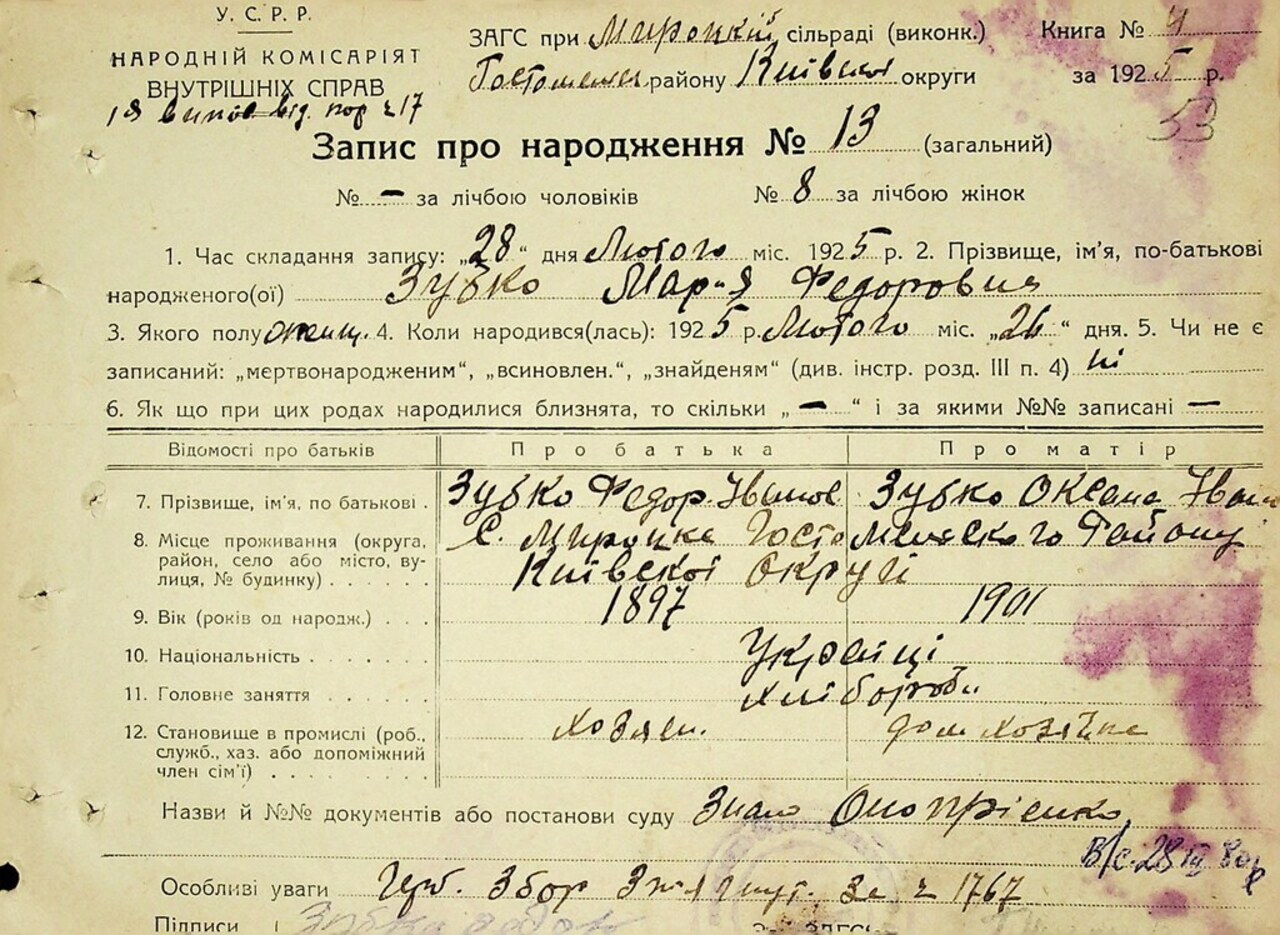 У. С. Р. Р.
НАРОДНІЙ КОМІСАРІЯТ
ВНУТРІШНІХ СПРАВ
ЗАГС при Мироцкій сільраді (виконк.) Книга № 4
району Київскої округи за 1925 р.
53
Запис про народження № 13 (загальний)
№ – за лічбою чоловіків № 8 за лічбою жінок
1. Час складання запису: „28“ дня Лютого міс. 1925 р. 2. Прізвище, ім'я, по-батькові
народженого(ої) Зубко Мария Федоровна
3. Якого полу женщ. 4. Коли народився(лась): 1925 р. Лютого міс. „26“ дня. 5. Чи не є
записаний: „мертвонародженим“, „всиновлен.“, „знайденям“ (див. інстр. розд. III п. 4) ні
6. Як що при цих родах народилися близнята, то скільки „–“ і за якими №№ записані –
Відомості про батьків Про батька Про матір
7. Прізвище, ім'я, по батькові . Зубко Федор Иванов Зубко Оксана Иван
8. Місце проживання (округа, район, село або місто, вулиця, № будинку) С. Мироцке Гостомелского Району
Київскої Округи
9. Вік (років од народж.) . . . 1897 1901
10. Національність . . . . . . . Українці
11. Головне заняття . . . . . . хлібороби
12. Становище в промислі (роб., служб., хаз. або допоміжний член сім'ї) . . . . . . . . хозяен. дом хозяйка
Назви й №№ документів або постанови суду Опоприенко
Особливі уваги Герб. Збор за ч 1767
Підписи